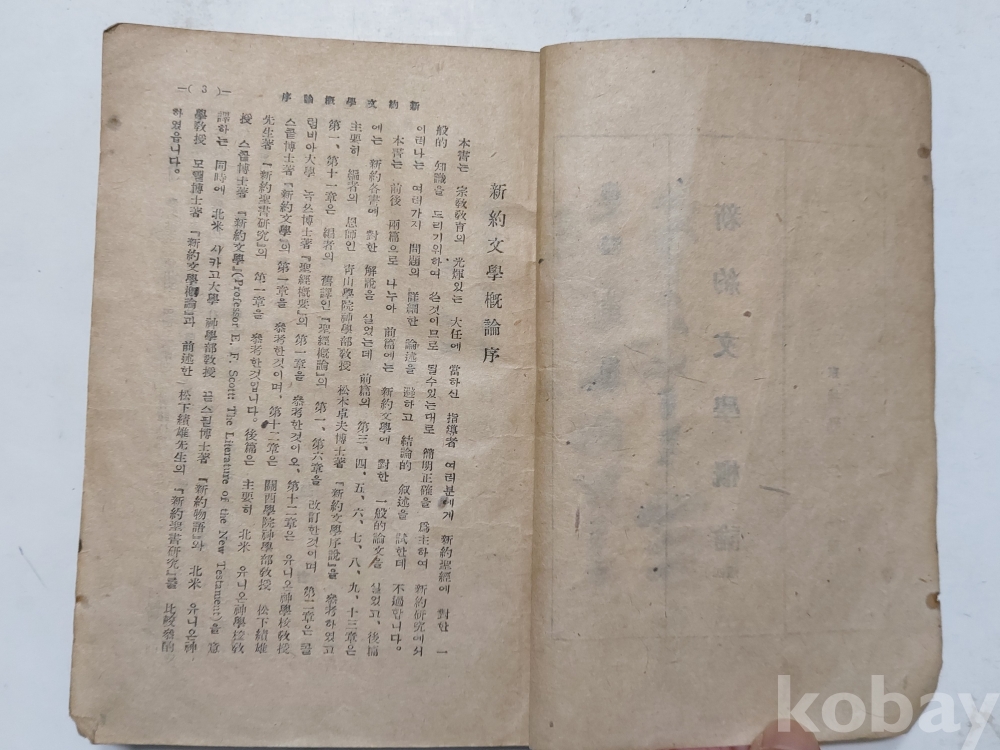 新約文學槪論序
本書는 宗敎敎育의 光輝있는 大任에 當하신 指導者 여러분에게 新約聖經에 對한 一
般的 知識을 드리기위하여 쓴것이므로 될수있는대로 簡明正確을 爲主하여 新約硏究에서
이러나는 여러가지 問題의 詳細한 論述을 避하고 結論的 敘述을 試한데 不過합니다。
本書는 前後 兩篇으로 나누아 前篇에는 新約文學에 對한 一般的論文을 실었고、後篇
에는 新約各書에 對한 解說을 실었는데 前篇의 第三、四、五、六、七、八、九、十三章은
主要히 編者의 恩師인 靑山學院神學部敎授 松本卓夫博士著『新約文學序說』을 參考하였고
第一、第十一章은 編者의 舊譯인『聖經槪論』의 第一、第六章을 改訂한것이며 第二章은 콜
럼비아大學 녹쓰博士著『聖經槪要』의 第一章을 參考한것이오、第十二章은 유니온神學校敎授
스콜博士著『新約文學』의 第一章을 參考한것이며、第十二章은 關西學院神學部敎授 松下績雄
先生著『新約聖書硏究』의 第一章을 參考한것입니다。後篇은 主要히 北米 유니온神學校敎
授 스콜博士著『新約文學』(Professor E. F. Scott: The Literature of the New Testament)을 意
譯하는 同時에 北米 시카고大學 神學部敎授 꾿스필博士著『新約物語』와 北米 유니온神
學敎授 모펱博士著『新約文學槪論』과 前述한 松下績雄先生의『新約聖書硏究』를 比較參酌
하였읍니다。
新約文學槪論序
—( 3 )—
新約文學槪論
kobay